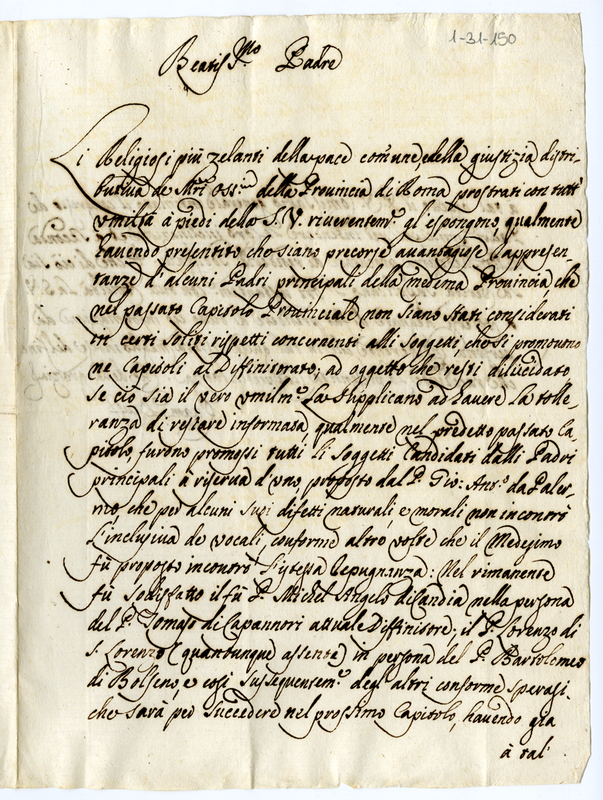 1-31-150
Beatis.mo Padre
Li Religiosi più zelanti della pace comune e della giustizia distri-
butiva de Mri Oss.ti della Provincia di Roma prostrati con tutt'
umiltà à piedi della S. V. riverentem.e gl'espongono, qualmente
havendo presentito che siano precorse avantagiose rappresen-
tanze d'alcuni Padri principali della medema Provincia che
nel passato Capitolo Provinciale non siano stati considerati
in certi soliti rispetti concernenti alli soggetti, che si promovono
ne Capitoli al Diffinitorato; ad oggetto che resti dilucidato
se ciò sia il vero umilm.e La supplicano ad havere la tolle-
ranza di restare informata, qualmente nel predetto passato Ca-
pitolo, furono promossi tutti li soggetti Candidati dalli Padri
principali à riserva d'uno proposto dal P. Gio: Ant.o da Paler-
mo, che per alcuni suoi difetti naturali, e morali non incontrò
l'inclusiva de vocali, conforme altre volte che il Medesimo
fù proposto incontrò l'istessa repugnanza: Nel rimanente
fù sodisfatto il fù P. Michel Angelo di Candia nella persona
del P. Tomaso di Capannori attuale Diffinitore; il P. Lorenzo di
S. Lorenzo (quantunque assente) in persona del P. Bartolomeo
di Bolseno, e così sussequentem.e degl'altri conforme sperasi
che sarà per succedere nel prossimo Capitolo, havendo già
à tal'